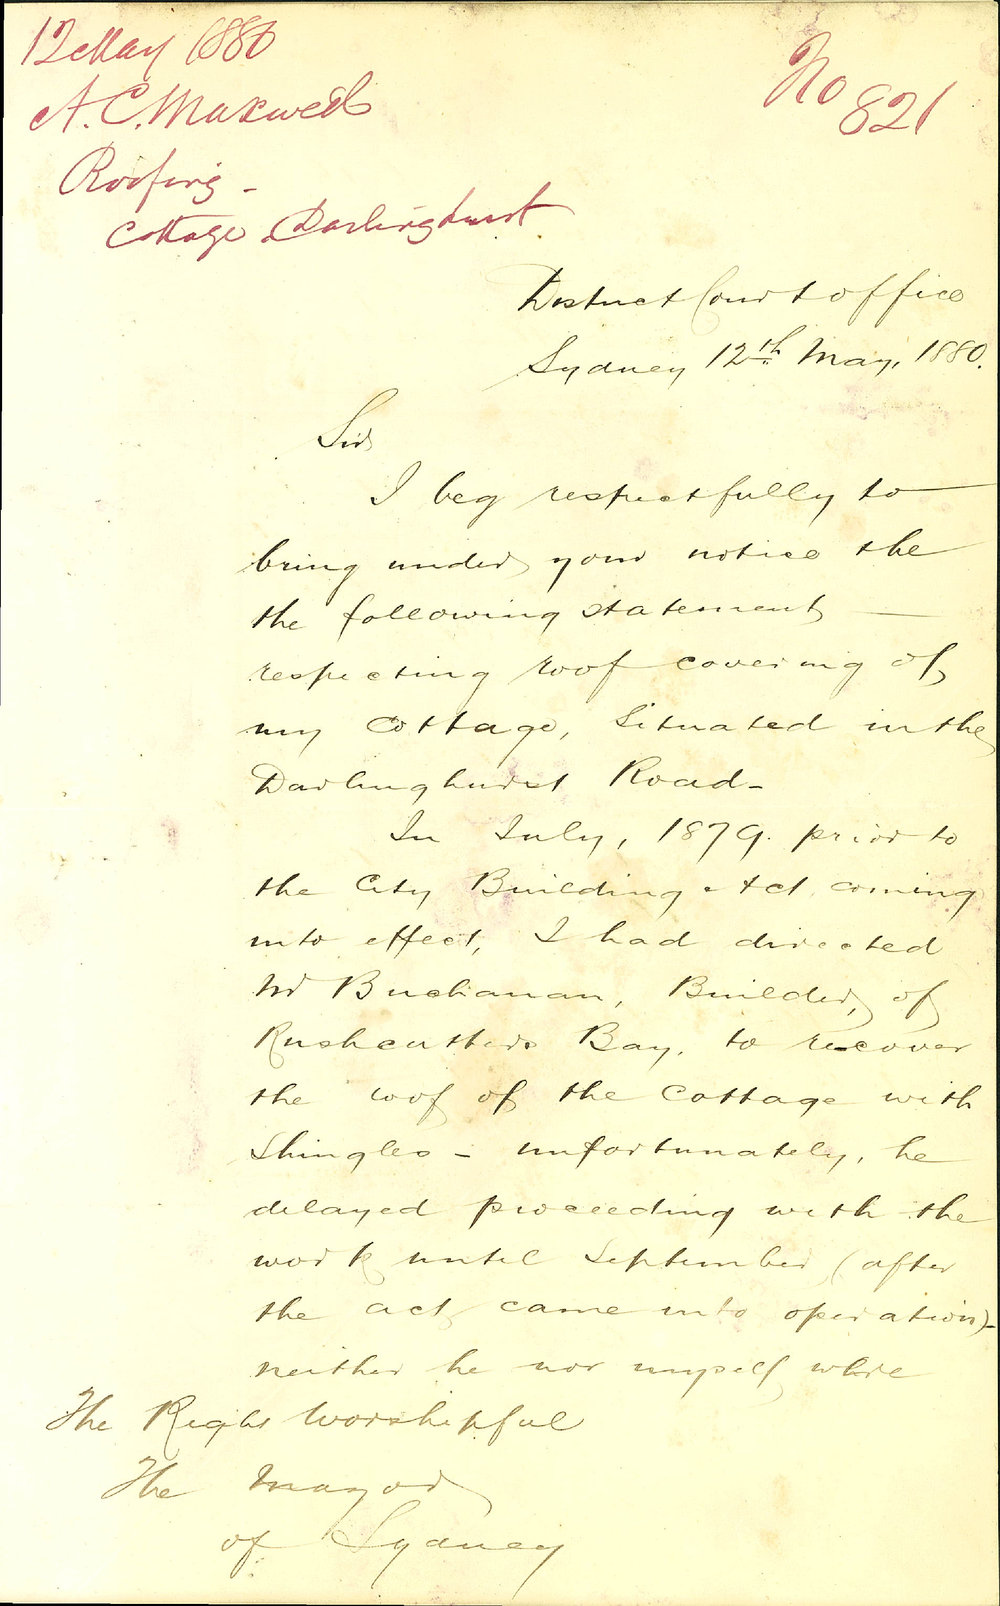 12 May 1880
A. C. Maxwell
Roofing -
Cottage Darlinghurst
No 821
District Court office
Sydney 12th May, 1880.
Sir
I beg respectfully to
bring under your notice the
the following statement
respecting roof covering of
my cottage, situated in the
Darlinghurst Road -
In July, 1879. prior to
the City Building Act coming
into effect, I had directed
Mr Buchanan, Builder, of
Rushcutters Bay, to re-cover
the roof of the cottage with
shingles - unfortunately, he
delayed proceeding with the
work until September (after
the act came into operation) -
neither he nor myself
The Right Worshipful
The Mayor
of Sydney